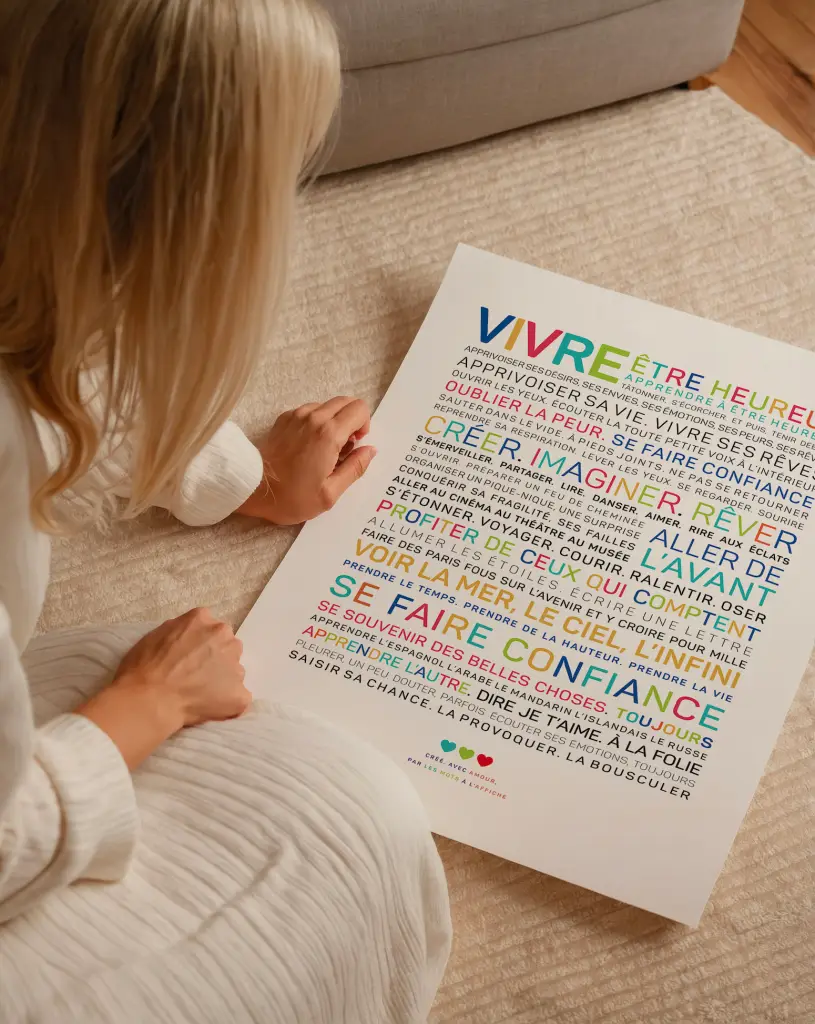 VIVRE ÊTRE HEUREU
APPRENDRE À ÊTRE HEURE
APPRIVOISER SES DÉSIRS, SES ENVIES, SES ÉMOTIONS, SES PEURS, SES RÊV
TÂTONNER, S'ÉCORCHER, ET PUIS, TENIR DE
APPRIVOISER SA VIE. VIVRE SES RÊVES
OUVRIR LES YEUX. ÉCOUTER LA TOUTE PETITE VOIX À L'INTÉRIEU
OUBLIER LA PEUR. SE FAIRE CONFIANCE
SAUTER DANS LE VIDE, À PIEDS JOINTS. NE PAS SE RETOURNER
REPRENDRE SA RESPIRATION. LEVER LES YEUX. SE REGARDER. SOURIRE
CRÉER. IMAGINER. RÊVER
S'ÉMERVEILLER. PARTAGER. LIRE. DANSER. AIMER. RIRE AUX ÉCLATS
S'OUVRIR. PRÉPARER UN FEU DE CHEMINÉE
ORGANISER UN PIQUE-NIQUE, UNE SURPRISE
CONQUÉRIR SA FRAGILITÉ, SES FAILLES
ALLER AU CINÉMA AU THÉÂTRE AU MUSÉE
ALLER DE
L'AVANT
S'ÉTONNER. VOYAGER. COURIR. RALENTIR. OSER
PROFITER DE CEUX QUI COMPTENT
ALLUMER LES ÉTOILES. ÉCRIRE UNE LETTRE
FAIRE DES PARIS FOUS SUR L'AVENIR ET Y CROIRE POUR MILLE
VOIR LA MER, LE CIEL, L'INFINI
PRENDRE LE TEMPS. PRENDRE DE LA HAUTEUR. PRENDRE LA VIE
SE FAIRE CONFIANCE
SE SOUVENIR DES BELLES CHOSES. TOUJOURS
APPRENDRE L'ESPAGNOL L'ARABE LE MANDARIN L'ISLANDAIS LE RUSSE
APPRENDRE L'AUTRE. DIRE JE T'AIME. À LA FOLIE
PLEURER, UN PEU. DOUTER, PARFOIS. ÉCOUTER SES ÉMOTIONS, TOUJOURS
SAISIR SA CHANCE. LA PROVOQUER. LA BOUSCULER
CRÉÉ, AVEC AMOUR,
PAR LES MOTS À L'AFFICHE